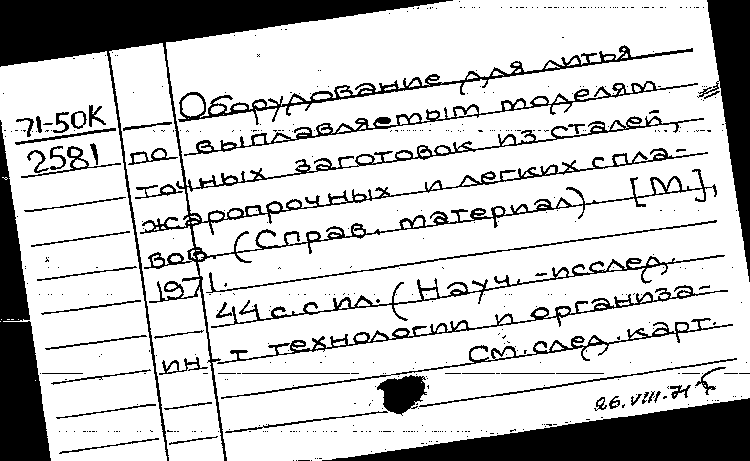 71-50К
2581
Оборудование для литья
по выплавляемым моделям
точных заготовок из сталей,
жаропрочных и легких спла-
вов. (Справ. материал). [М.],
1971.
44 с. с ил. (Науч.-исслед.
ин-т технологии и организа-
См. след. карт.
26.VIII.71